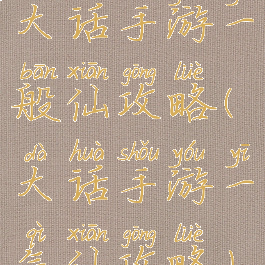 大话手游一
bān xiān gōng lüè
般仙攻略(
dà huà shǒu yóu yī
大话手游一
qì xiān gōng lüè
仙攻略)